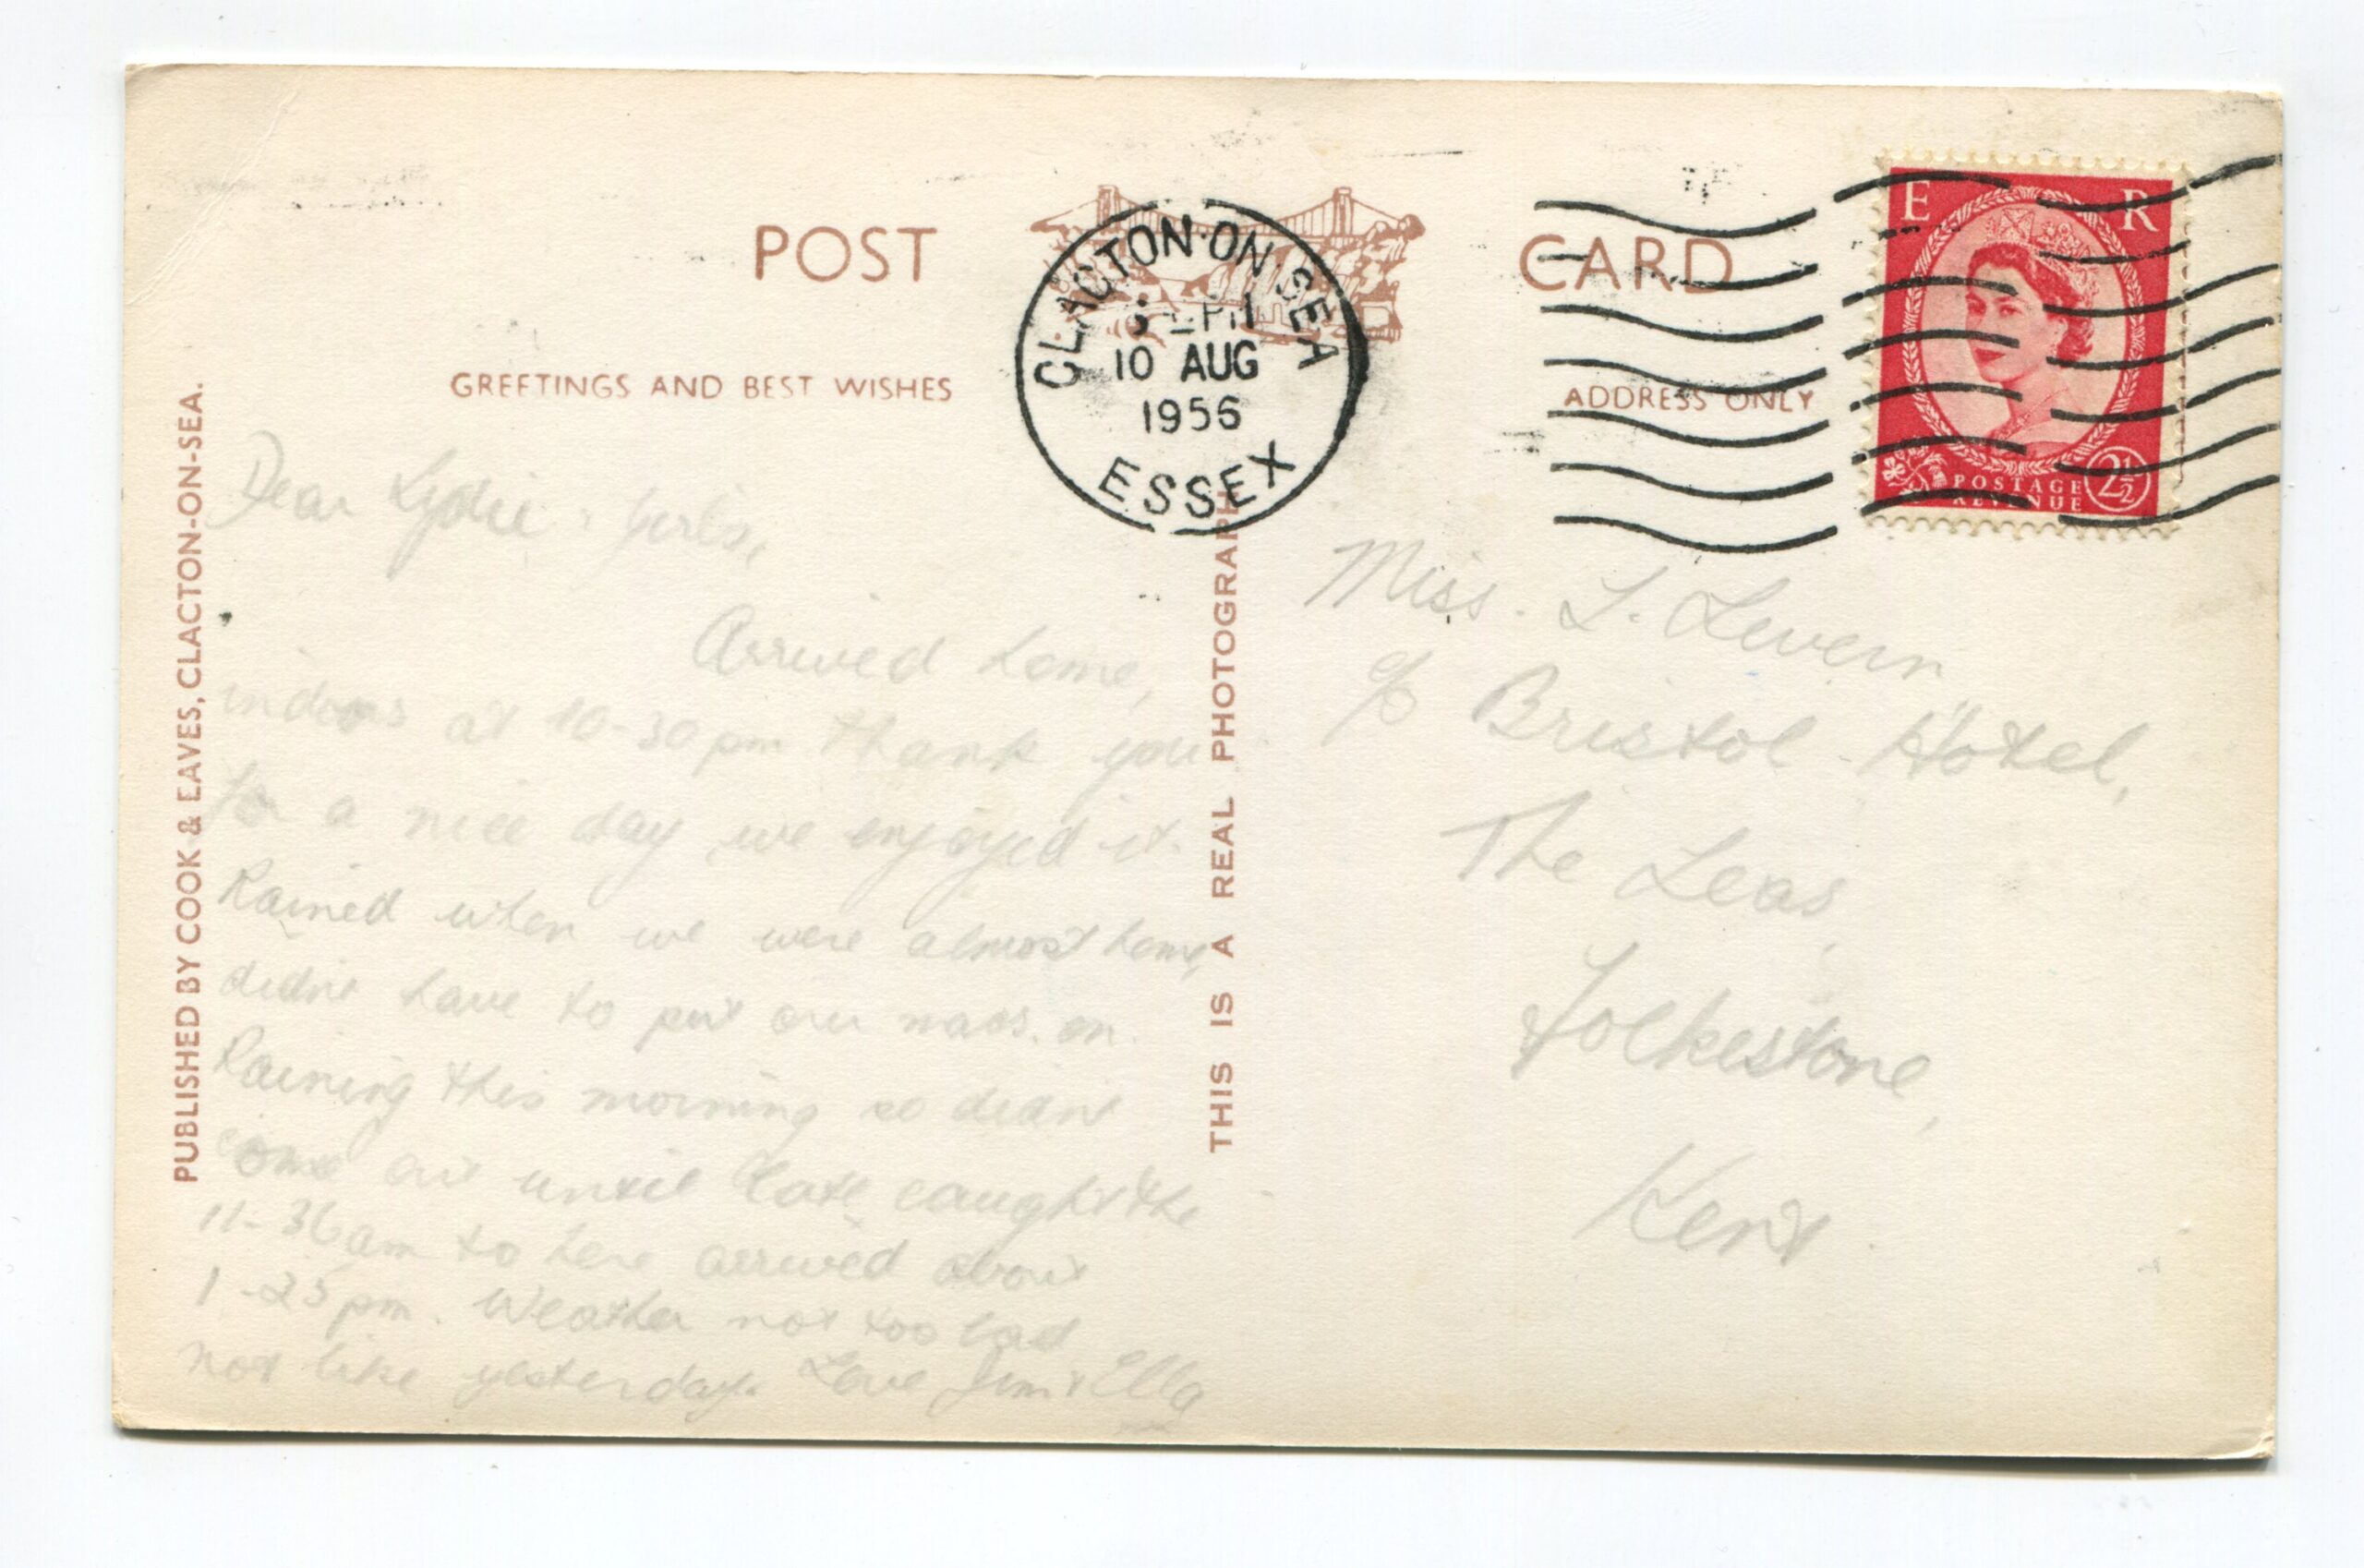 POST CARD
GREETINGS AND BEST WISHES
ADDRESS ONLY
CLACTON-ON-SEA
PM
10 AUG
1956
ESSEX
E R
POSTAGE
REVENUE
2½
PUBLISHED BY COOK & EAVES, CLACTON-ON-SEA.
THIS IS A REAL PHOTOGRAPH
Dear Lydie & Girls,
Arrived home,
indoors at 10-30 pm thank you
for a nice day, we enjoyed it.
Rained when we were almost home,
didnt have to put our macs. on.
Raining this morning so didnt
come out until late caught the
11-36 am to here arrived about
1-25 pm. Weather not too bad
not like yesterday. Love Jim & Ella
Miss. L. Levern
c/o Bristol Hotel,
The Leas,
Folkestone,
Kent.